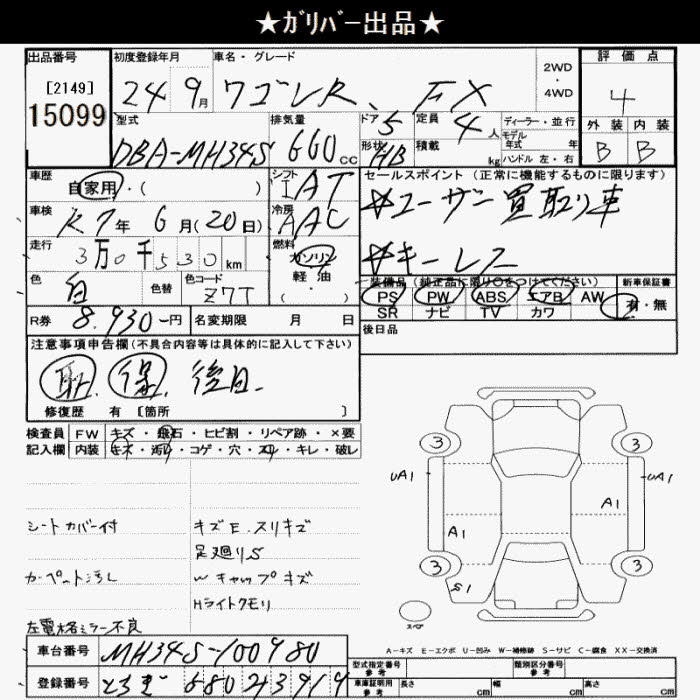 ★ガリバー出品★
出品番号 初度登録年月 車名・グレード 2WD・4WD 評価点
[2149]
15099
24 9月 ワゴンR、 FX 4
型式 排気量 ドア 5 定員 4人 ディーラー・並行 外装 内装
DBA-MH34S 660cc 形状 HB 積載 kg モデル年式 年 B B
ハンドル 左・右
車歴 自家用・( ) シフト IAT セールスポイント (正常に機能するものに限ります)
車検 R7年 6月(20日) 冷房 AAC ☆ユーザー買取り車
走行 3万0千530km 燃料 ガソリン ☆キーレス
軽油
色 白 色替 色コード Z7T ( ・ )
装備品 (純正品に限り○をつけてください) 新車保証書
PS PW ABS エアB AW 有・無
SR ナビ TV カワ
R券 8,930-円 名変期限 月 日 後日品
注意事項申告欄(不具合内容等は具体的に記入して下さい)
取 保 後日.
修復歴 有 [箇所 ]
検査員 FW キズ・飛石・ヒビ割・リペア跡・×要
記入欄 内装 キズ・汚れ・コゲ・穴・スレ・キレ・破レ
シートカバー付 キズE.スリキズ
足廻りS
カーペット汚し Wキャップキズ
Hライトクモリ
左電格ミラー不良
3 3
UA1 UA1
A1
A1
3 3
S1
スペア
A-キズ E-エクボ U-凹み W-補修跡 S-サビ C-腐食 XX-交換済
車台番号 MH34S-100980
登録番号 とちぎ 680 2 3919
型式指定番号 参考 類別区分番号 参考
車庫証明用 参考 長さ cm 幅 cm 高さ cm